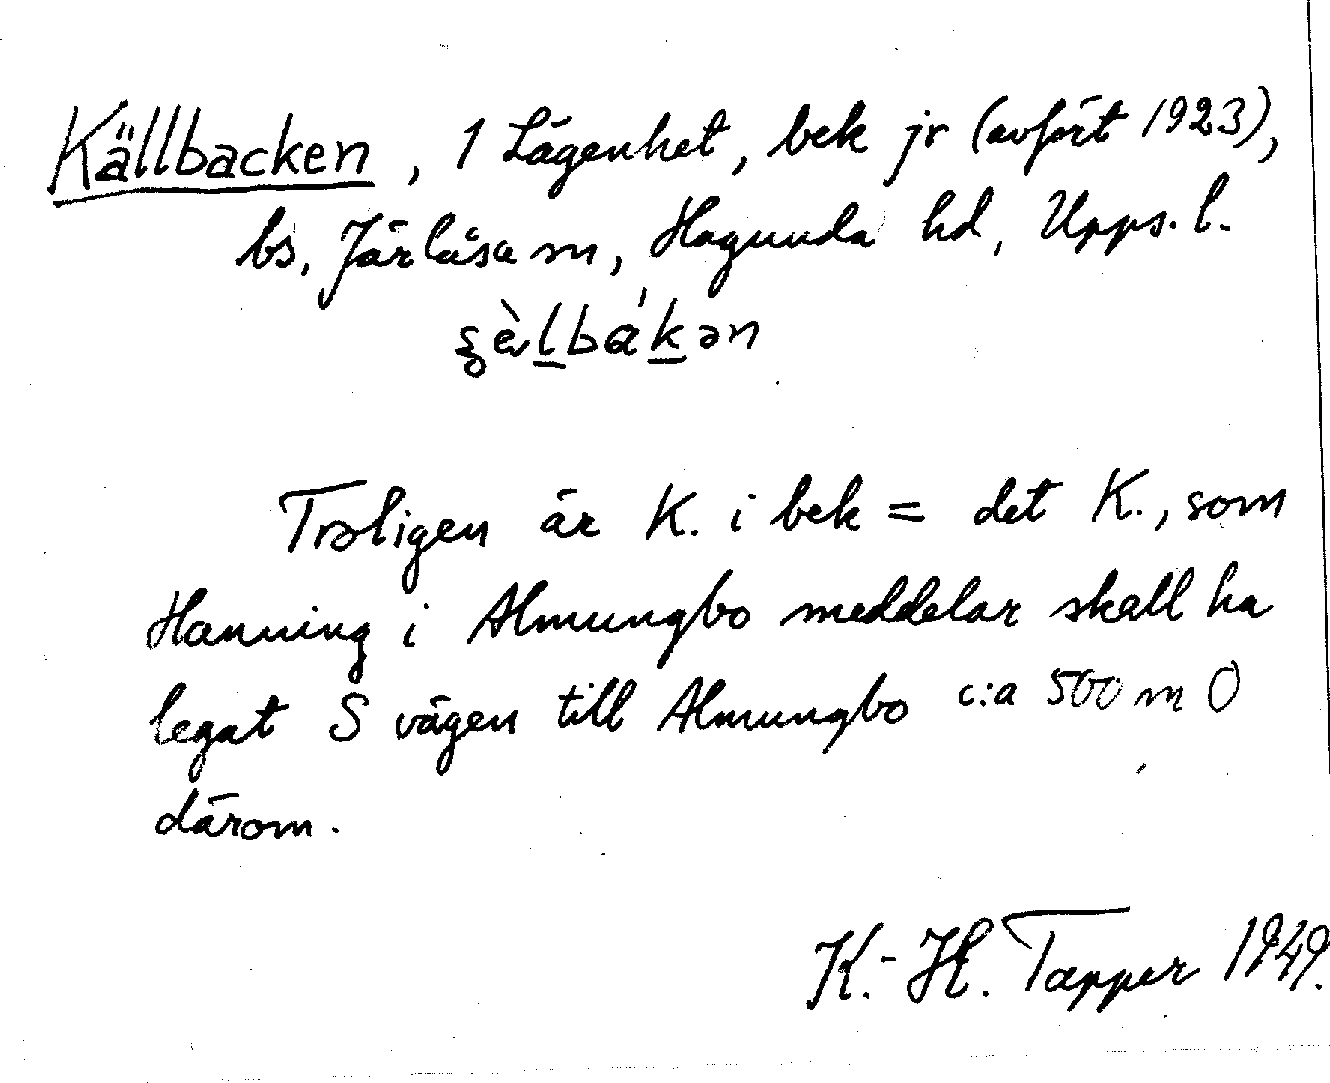 Källbacken, 1 Lägenhet, bek jr (avfört 1923),
bs, Järlåsa sn, Hagunda hd, Upps. l.
Troligen är K. i bek = det K., som
Hanning i Almungbo meddelar skall ha
legat S vägen till Almungbo c:a 500 m O
därom.
K.-H. Tapper 1949.